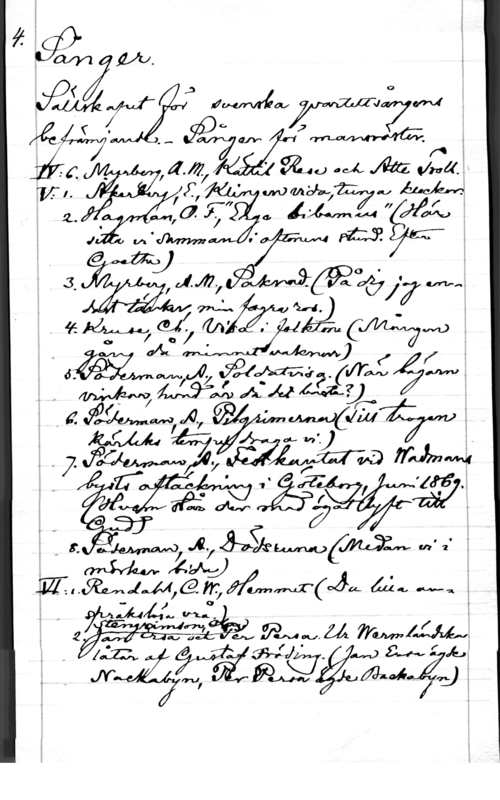 4.
Sånger.
Sällskapet för svenska qvartettsångens
befrämjande. - Sånger för mansröster.
IV: 6. Myrberg, A. M., Kättil Rese och Åtte Troll.
V: 1. Åkerberg, E., Klingen vida, tunga klockor.
2. Hagman, O. F., "Ergo bibamus" (Här
sitta vi samman i aftonens stund. Efter
Goethe)
3. Myrberg, A. M., Saknad. (På dig jag en-
samt tänker, min fagra ros.)
4. Kruse, Ch., Visa i folkton (Mången
gång då minnet vaknar)
5. Söderman, A., Soldatvisa. (När bägarn
vinkar, hvad är då det bästa?)
6. Söderman, A., Pilgrimerna (Till trogen
kärleks tempel draga vi.)
7. Söderman, A., Festkantat vid Wadmans
bysts aftäckning i Göteborg, Juni 1869.
(Hvem är den med ögat lyft till
Gud)
8. Söderman, A., Dödsruna (Medan vi i
mörker bida)
VI: 1. Rendahl, C. W., Hemmet (Du lilla an-
språkslösa vrå)
2. Stengrimson, Jan Ersa och Per Persa. Ur Wermländska
låtar af Gustaf Fröding. (Jan Ersa ägde
Nackabyn, Per Persa ägde Backabyn)